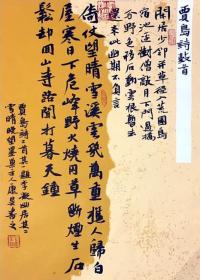 賈島詩數首
閑居少鄰并草徑入荒園鳥
宿池邊樹僧敲月下門過橋
分野色移石動雲根暫去
還來此幽期不負言
倚仗望晴雪溪雲幾萬重樵人歸白
屋寒日下危峰野火燒岡草斷煙生石
鬆卻回山寺路聞打暮天鐘
賈島詩二首其一題李凝幽居其二
雪晴晚望主人康書之